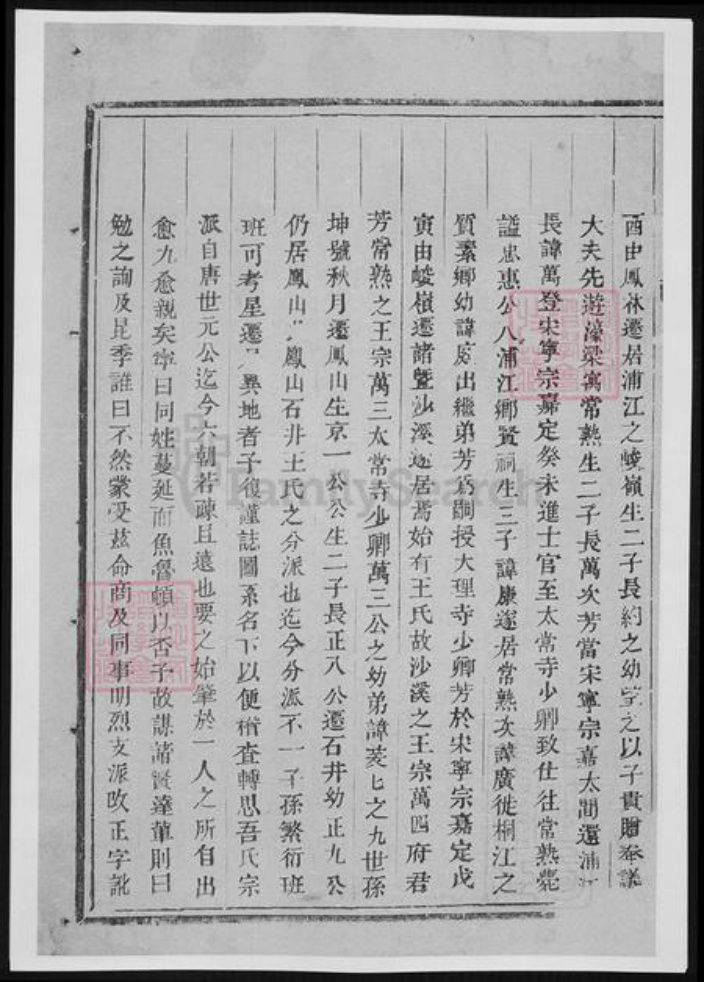 酉由鳳林遷居浦江之峻嶺生二子長約之幼望之以子貴贈奉議
大夫先遊濠梁寓常熟生二子長萬次芳當宋寧宗嘉太間還浦江
長諱萬登宋寧宗嘉定癸未進士官至太常寺少卿致仕往常熟薨
謚忠惠公入浦江鄉賢祠生三子諱康遂居常熟次諱廣徙桐江之
質素鄉幼諱 出繼弟芳為嗣授大理寺少卿芳於宋寧宗嘉定戊
寅由峻嶺遷諸暨沙溪 居焉始有王氏故沙溪之王宗萬四府君
芳常熟之王宗萬三太常寺少卿萬三公之幼弟諱菱七之九世孫
坤號秋月遷鳳山生京一公公生二子長正八公遷石井幼正九公
仍居鳳山此鳳山石井王氏之分派也迄今分派不一子孫繁衍班
班可考星遷 異地者予復謹誌圖系名下以便稽查轉思吾氏宗
派自唐世元公迄今六朝若疎且遠也要之始肇於一人之所自出
愈九愈親矣 曰同姓蔓延而魚魯頓以否予故謀諸賢達輩則曰
勉之詢及昆季誰曰不然蒙受茲命商及同事明烈支派改正字訛
FamilySearch